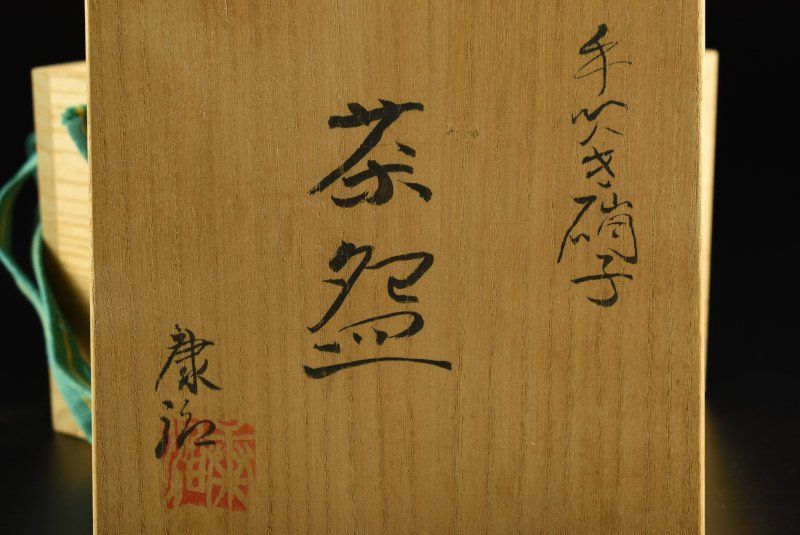 手吹き硝子
茶盌
康